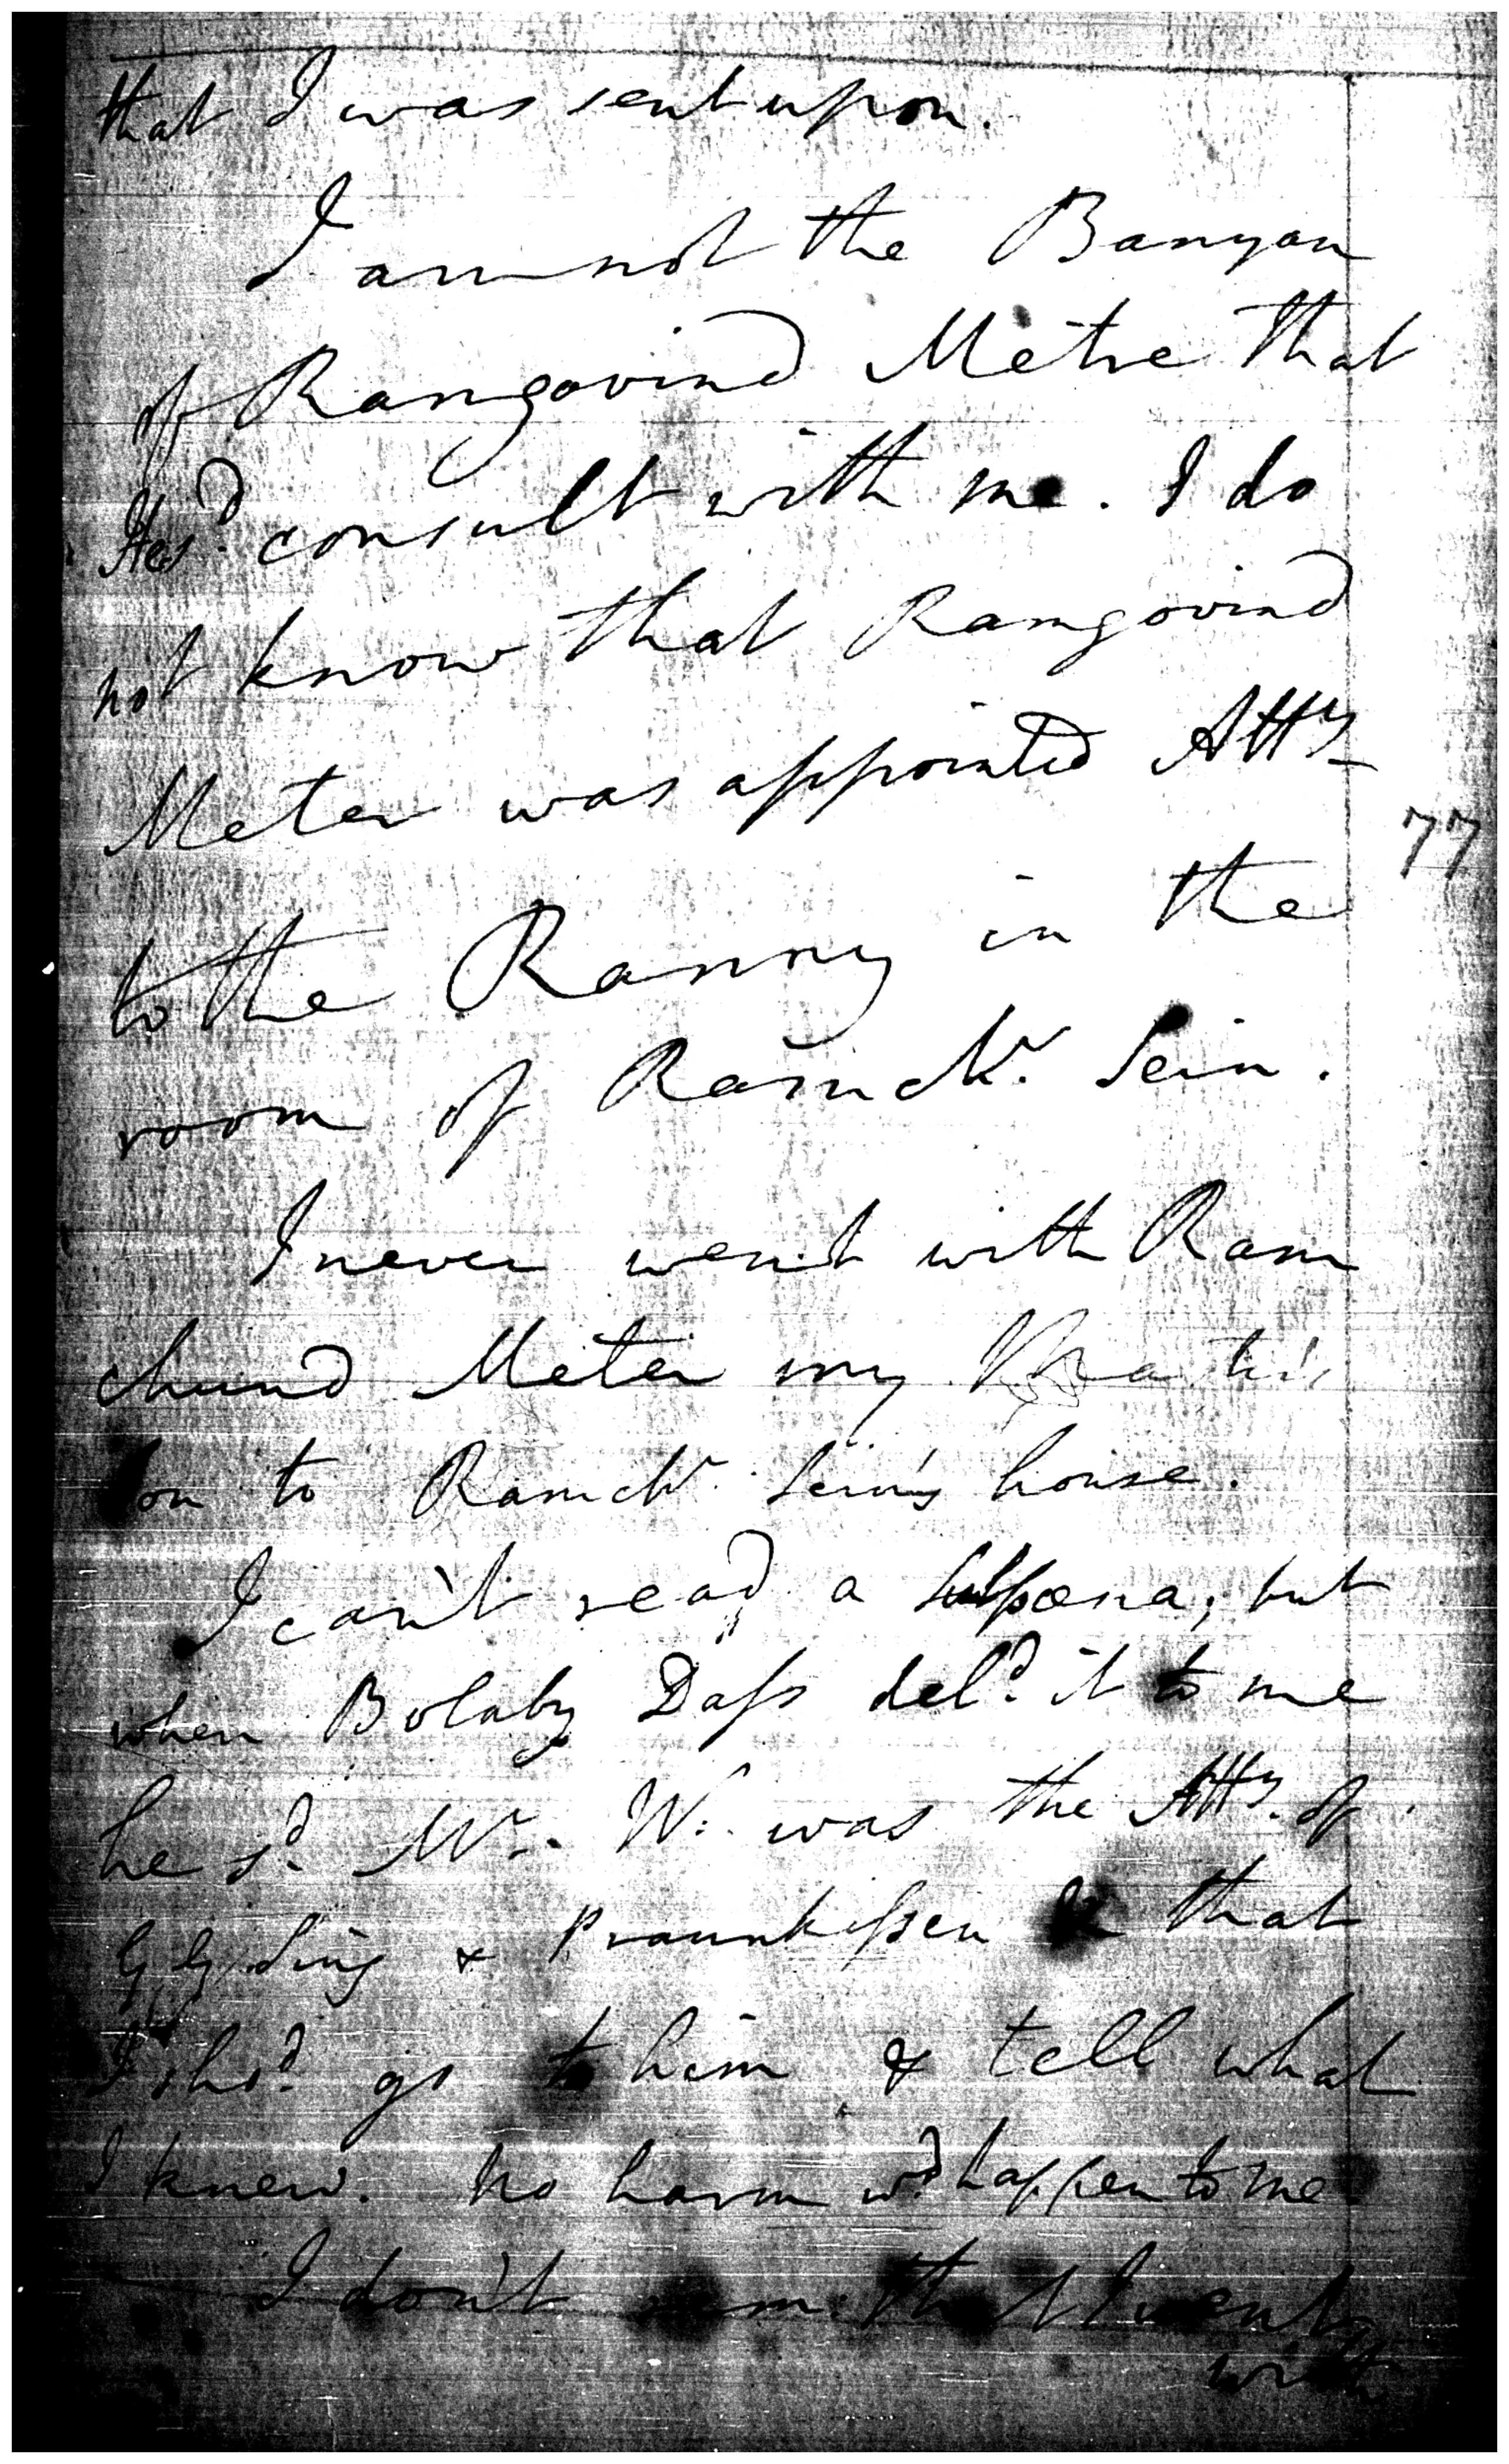 that I was sent upon.
I am not the Banyan
of Ramgovind Metre that
consult with me. I do
not know that Ramgovind
Meter was appointed Atty
77
to the Ranny in the
room of Ramck. Sein.
I never went with Ram
chund Meter my
son to Ramck. Sein's house.
I can't read a Subpœna, but
when Bolaby Dass deld. it to me
he sd. Mr. W. was the Atty. of
Sing & Praunkissen & that
I shod. go to him & tell what
I knew. No harm wd happen to me
I don't rem: that I went
with